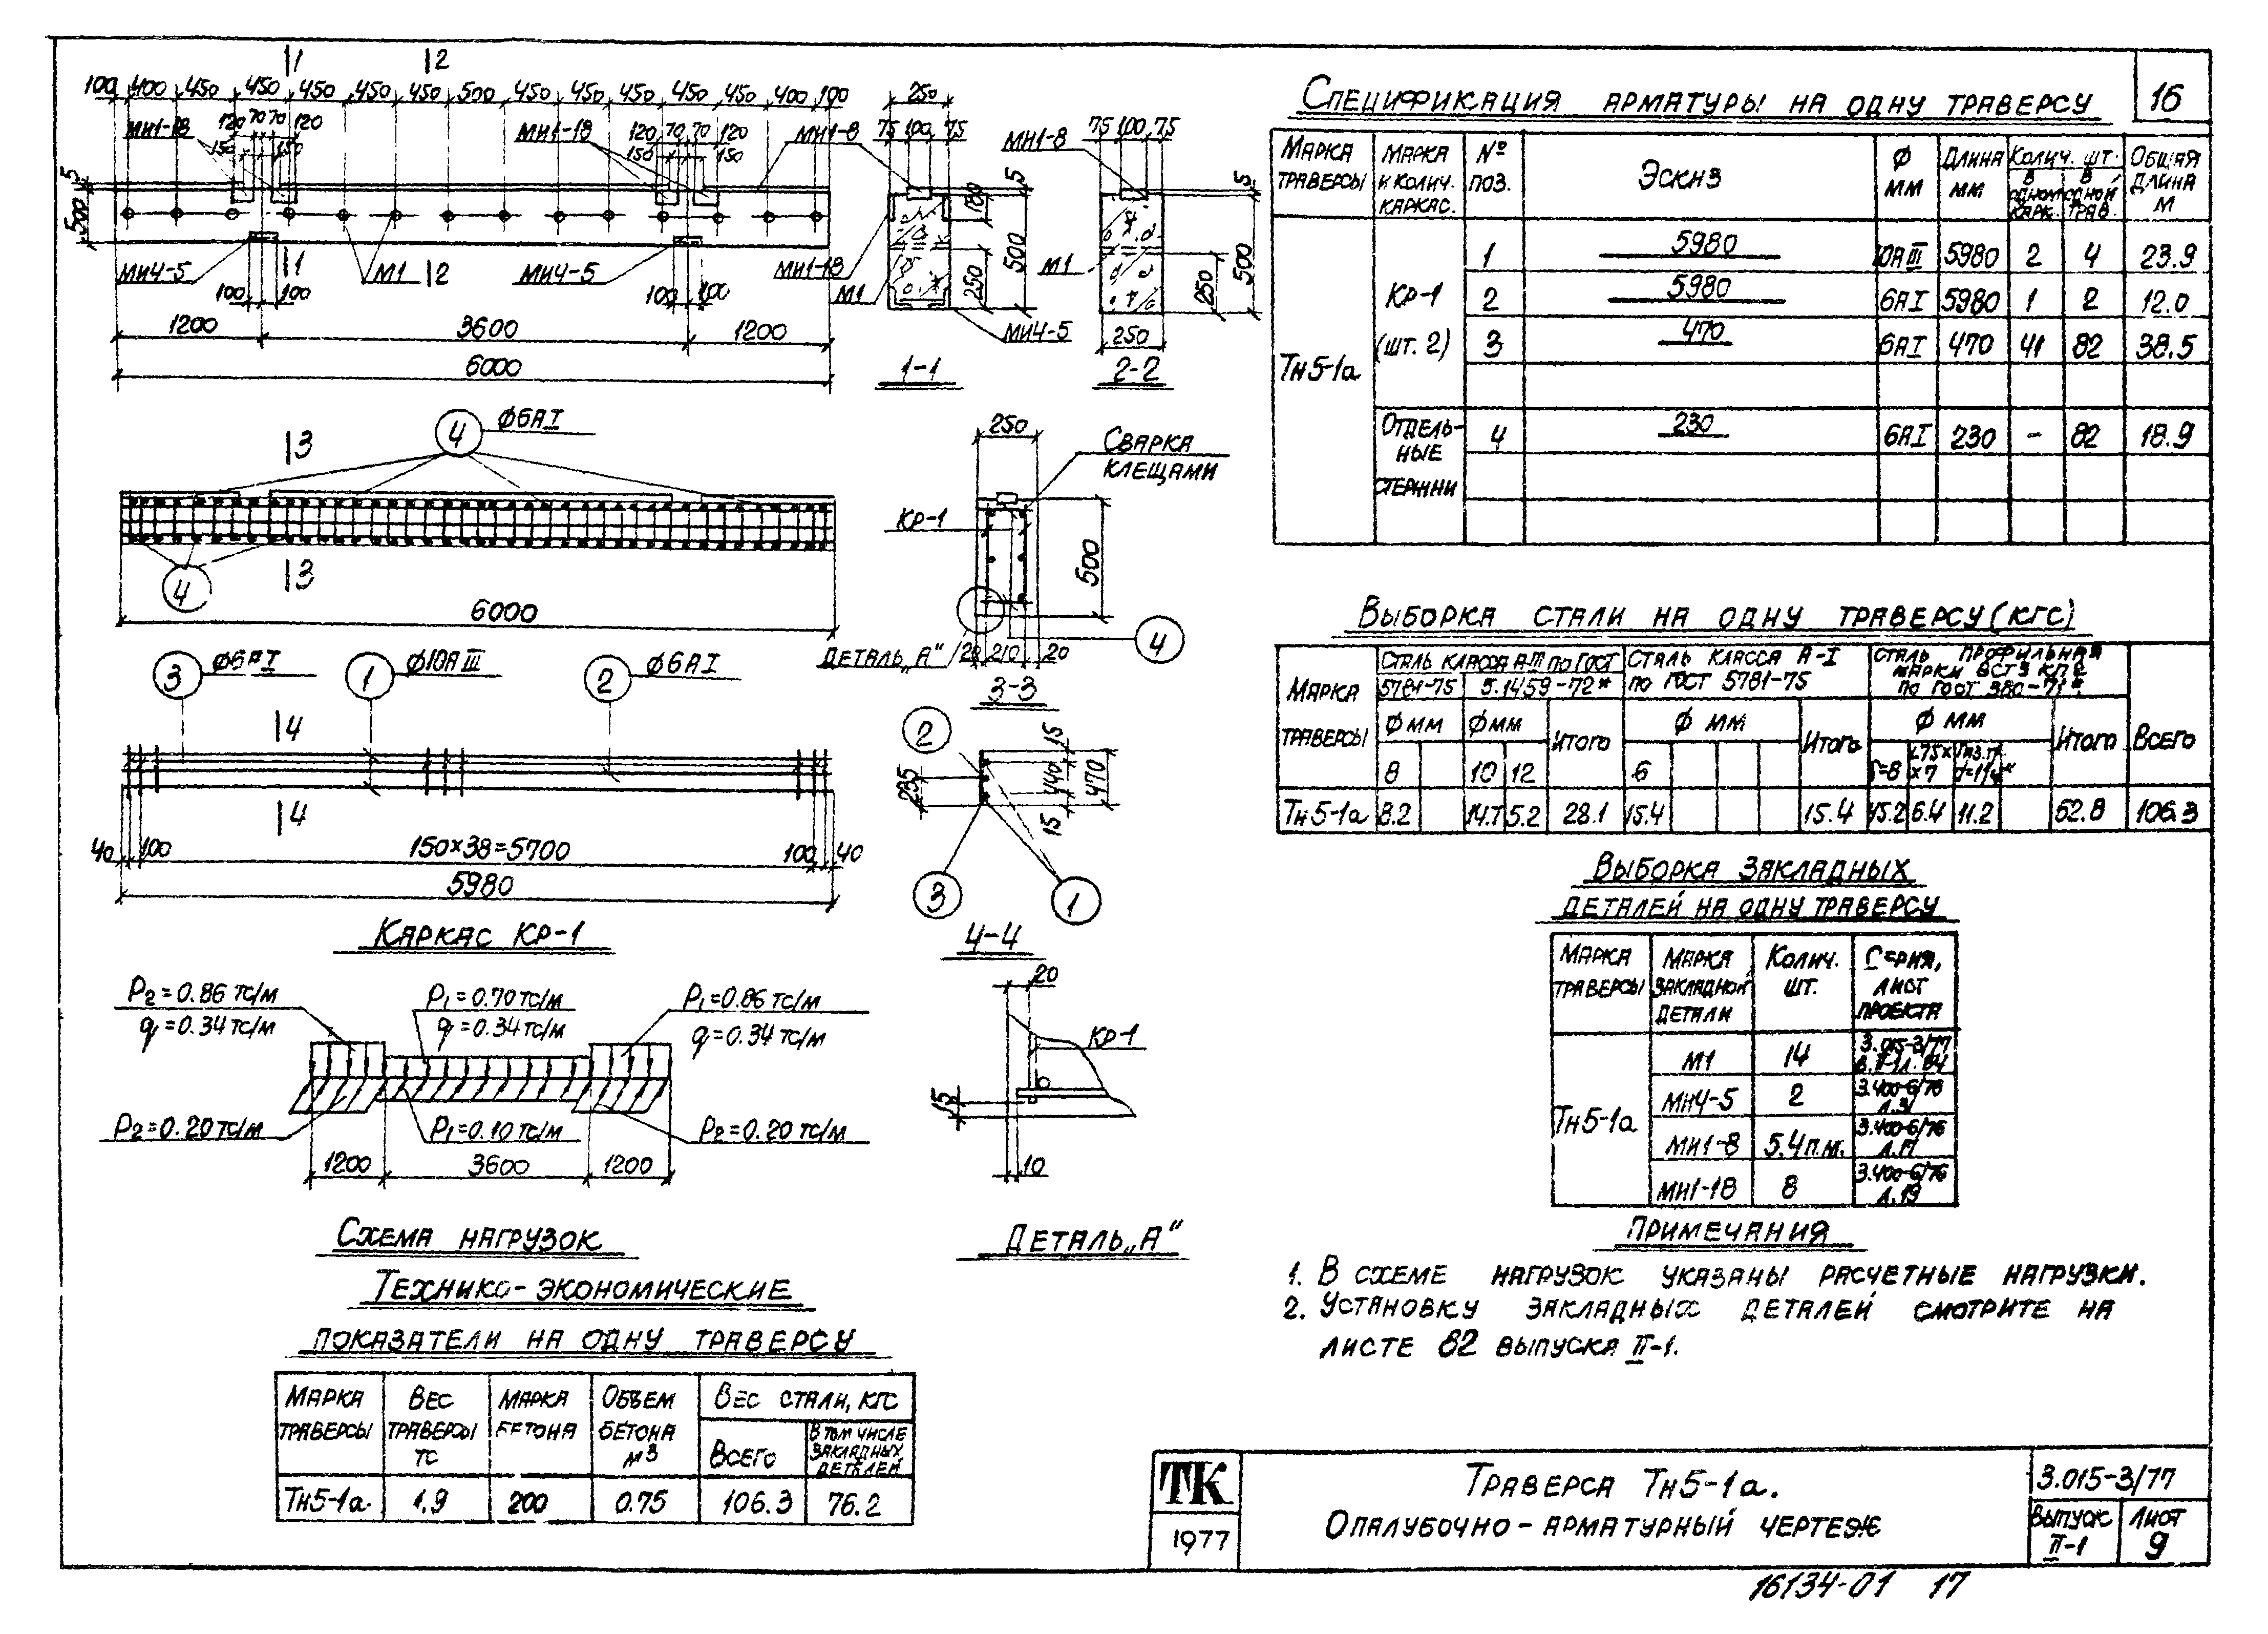 16
1 2
100 400 450 450 450 450 450 500 450 450 450 450 450 400 100
МИ1-18 120 70 70 120 МИ1-18 120 70 70 120 МИ1-8
150 150 150 150
5
500
МИ4-5 1 М1 2 МИ4-5
100 100 100 100
1200 3600 1200
6000
250
75 100 75
5
180
500
250
МИ1-18
М1
МИ4-5
1-1
МИ1-8 75 100 75
5
500
250
М1
250
2-2
3 4 ф6АI
4 3
6000
250
Сварка
клещами
КР-1
500
Деталь „А" 20 210 20
4
3-3
3 ф6АI 1 ф10АIII 2 ф6АI
4
4
40 100 150×38=5700 100 40
5980
Каркас КР-1
2
235
15
440
470
15
3 1
4-4
P2=0.86 тс/м P1=0.70 тс/м P1=0.86 тс/м
q=0.34 тс/м q=0.34 тс/м q=0.34 тс/м
P2=0.20 тс/м P1=0.10 тс/м P2=0.20 тс/м
1200 3600 1200
Схема нагрузок
20
КР-1
15
10
Деталь „А"
Технико-экономические
показатели на одну траверсу
Марка траверсы Вес траверсы тс Марка бетона Объем бетона м3 Вес стали, кгс
Всего В том числе закладных деталей
Тн5-1а 1.9 200 0.75 106.3 76.2
Спецификация арматуры на одну траверсу
Марка траверсы Марка и колич. каркас. № поз. Эскиз ф мм Длина мм Колич. шт. Общая длина м
В одном карк. В одной трав.
Тн5-1а КР-1 (шт. 2) 1 5980 10АIII 5980 2 4 23.9
2 5980 6АI 5980 1 2 12.0
3 470 6АI 470 41 82 38.5
Отдельные стержни 4 230 6АI 230 - 82 18.9
Выборка стали на одну траверсу (кгс)
Марка траверсы Сталь класса А-III по ГОСТ Сталь класса А-I по ГОСТ 5781-75 Сталь профильная марки ВСт3 кп2 по ГОСТ 380-71* Всего
5781-75 5.1459-72*
ф мм ф мм Итого ф мм Итого ф мм Итого
8 10 12 6 δ=8 L75× ×7
Тн5-1а 8.2 14.7 5.2 28.1 15.4 15.4 45.2 6.4 11.2 62.8 106.3
Выборка закладных
деталей на одну траверсу
Марка траверсы Марка закладной детали Колич. шт. Серия, лист проекта
Тн5-1а М1 14 3.015-3/77 в. II-1 л. 84
МИ4-5 2 3.400-6/76 л.31
МИ1-8 5.4 п.м. 3.400-6/76 л.17
МИ1-18 8 3.400-6/76 л.19
Примечания
1. В схеме нагрузок указаны расчетные нагрузки.
2. Установку закладных деталей смотрите на
листе 82 выпуска II-1.
ТК
1977
Траверса Тн5-1а.
Опалубочно-арматурный чертеж
3.015-3/77
Выпуск II-1
Лист 9
16134-01 17